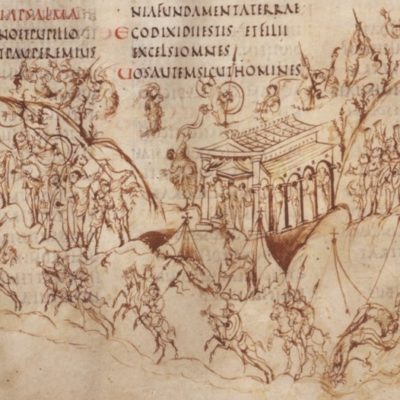 IAPSALMA
NOETPUPILLO
TPAUPEREMIUS
NIAFUNDAMENTATERRAE
ECODIXIDIIESTIS ETFILII
EXCELSIOMNES
UOSAUTEMSICUTHOMINES